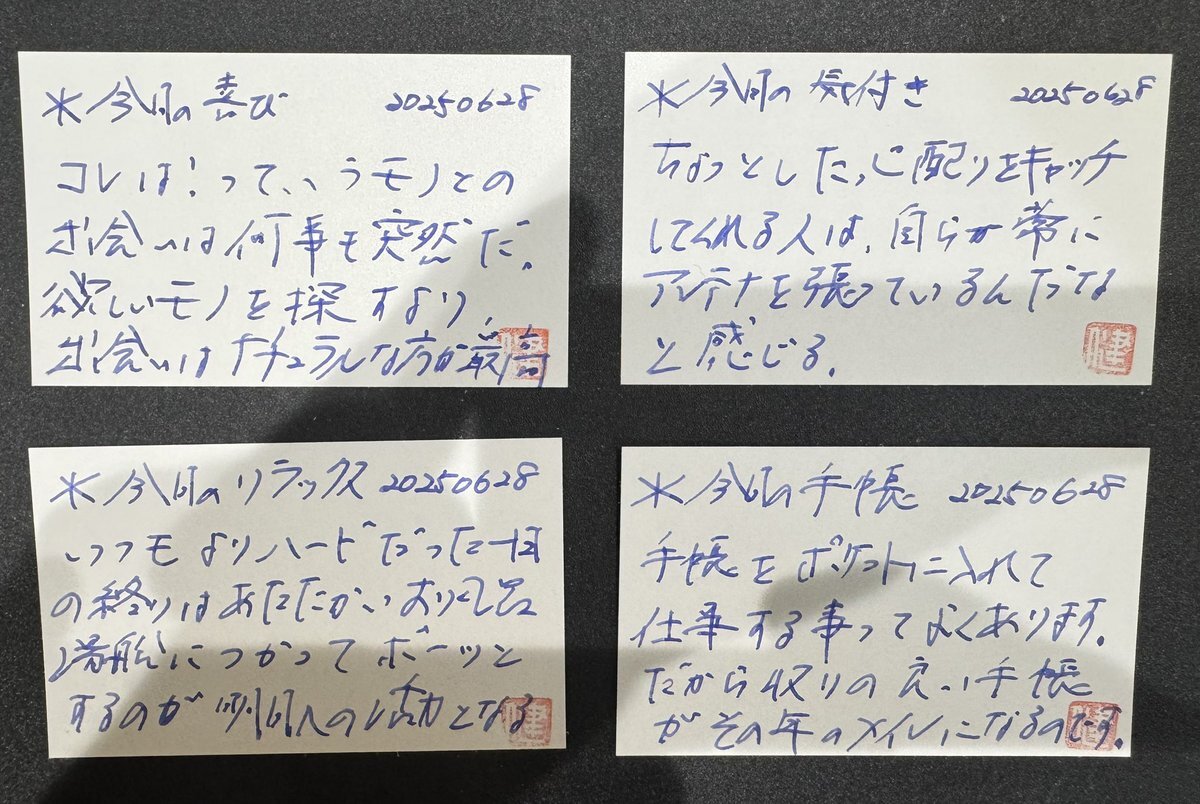 ＊今日の喜び 20250628
コレは!っていうモノとの
出会いは何事も突然だ。
欲しいモノを探すより、
出会いはナチュラルな方が最高
健
＊今日の気付き 20250628
ちょっとした心配りをキャッチ
してくれる人は、自らが常に
アンテナを張っているんだってな
と感じる。
健
＊今日のリラックス 20250628
いつもよりハードだった一日
の終りはあたたかいお風呂
湯船につかってボーッと
するのが明日への活力となる
健
＊今日の手帳 20250628
手帳をポケットに入れて
仕事する事ってよくあります。
だから収りの良い手帳
がその年のメインになるのです。
健